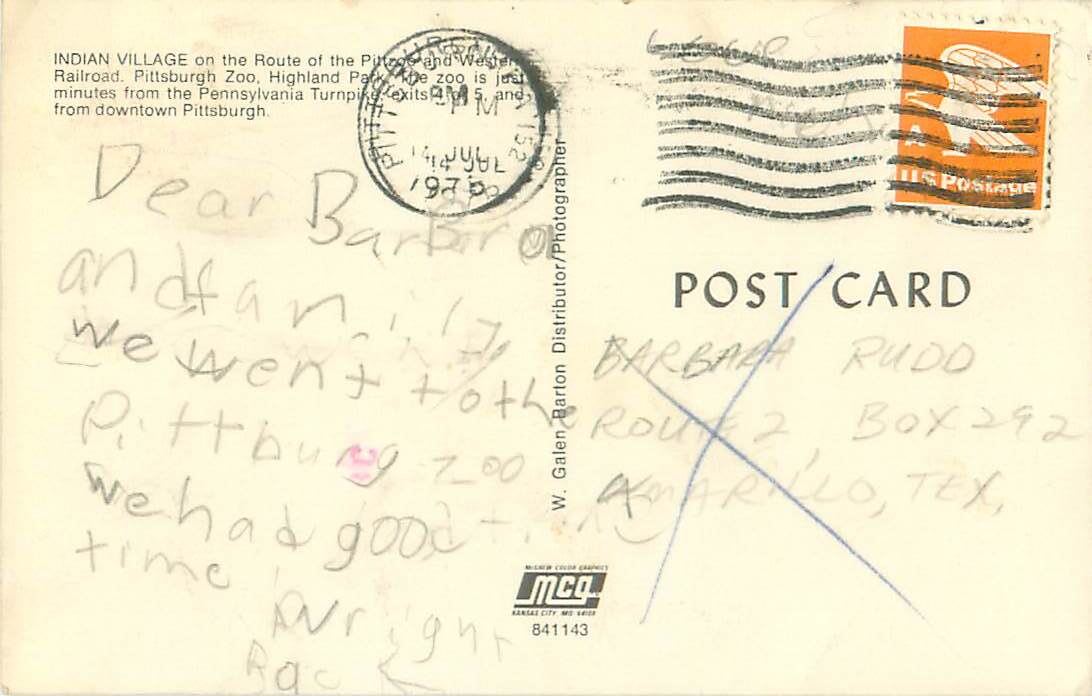 INDIAN VILLAGE on the Route of the Pitzoo and Western
Railroad. Pittsburgh Zoo, Highland Park. The zoo is just
minutes from the Pennsylvania Turnpike, exits 4 or 5, and
from downtown Pittsburgh.
PM
1975
US Postage
Dear Barbara
and family,
we went to the
Pittburg zoo
we had good
time
Wright
Back
W. Galen Barton Distributor/Photographer
POST CARD
BARBARA RUDD
ROUTE 2, BOX 292
AMARILLO, TEX.
McGREW COLOR GRAPHICS
mcg
KANSAS CITY, MO 64108
841143